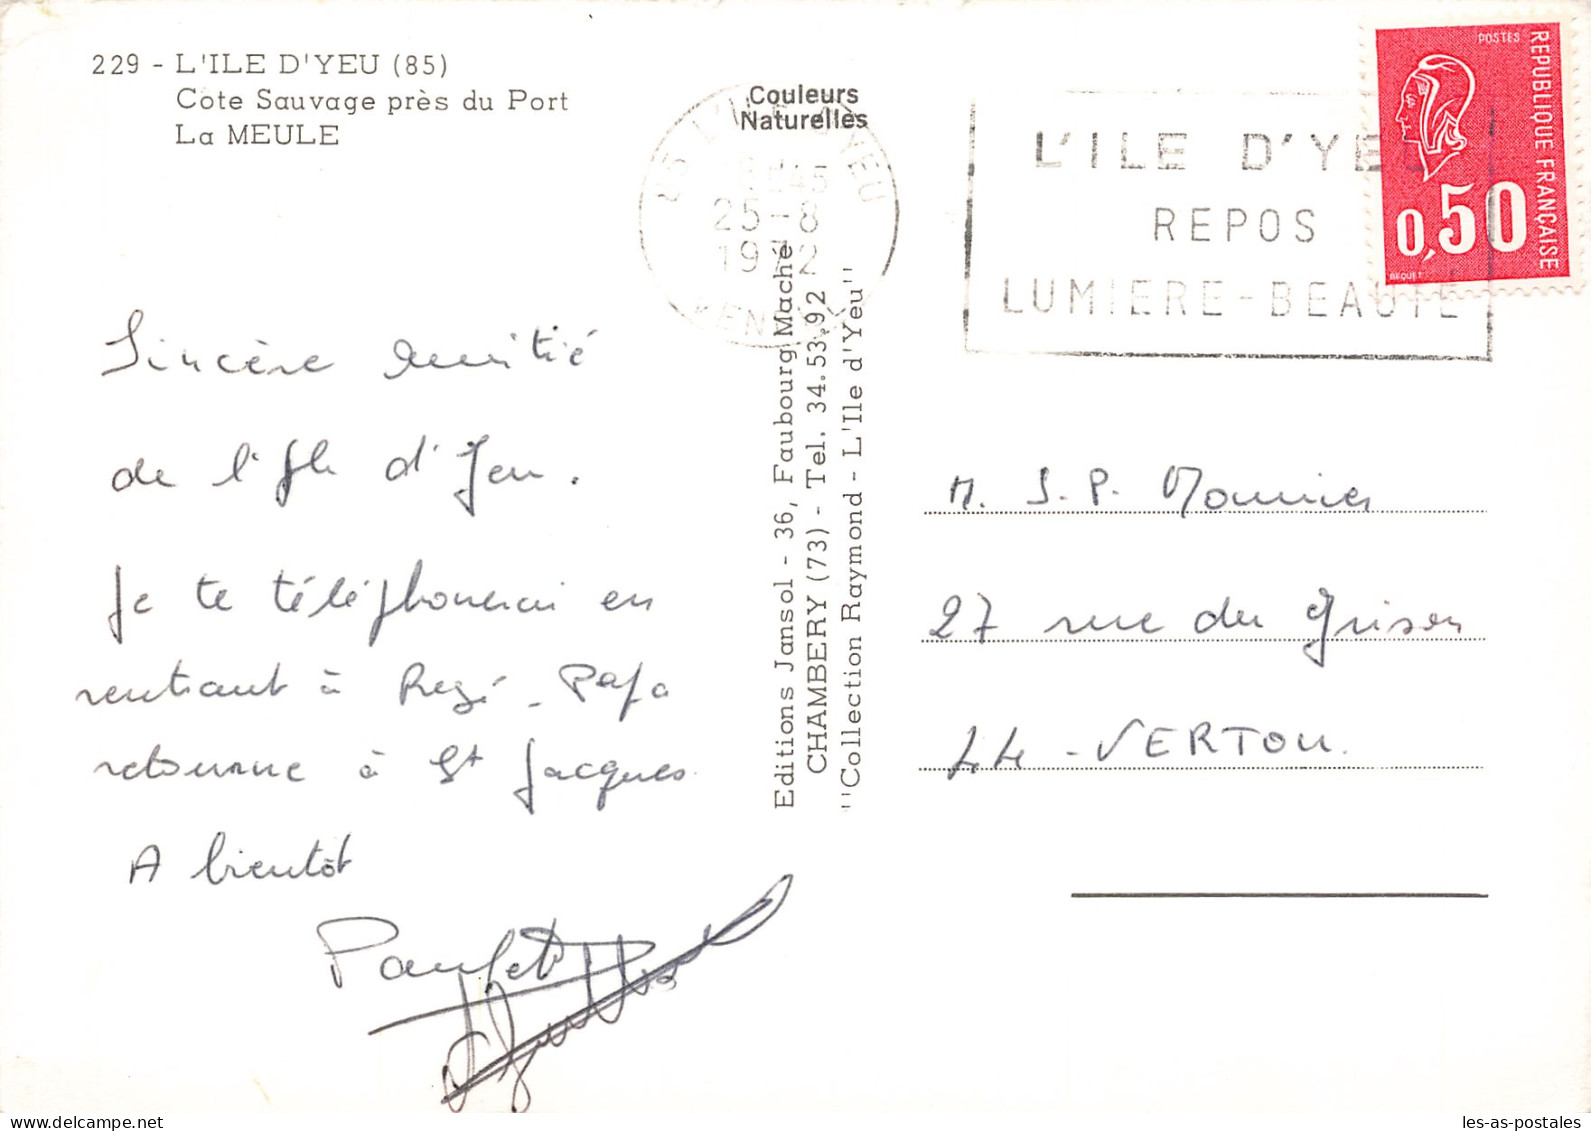 229 - L'ILE D'YEU (85)
Cote Sauvage près du Port
La MEULE
Couleurs
Naturelles
85 L'ILE D'YEU
45
25-8
1972
VENDEE
L'ILE D'YEU
REPOS
LUMIERE-BEAUTE
POSTES
REPUBLIQUE FRANÇAISE
0,50
BEQUET
Sincère amitié
de l'Ile d'Yeu.
Je te téléphonerai en
rentrant à Rezé - Papa
retourne à St Jacques
A bientôt
Editions Jansol - 36, Faubourg Maché
CHAMBERY (73) - Tel. 34.53.92
"Collection Raymond - L'Ile d'Yeu"
M. J.P. Mounier
27 rue du Grison
44 - VERTOU.
les-as-postales